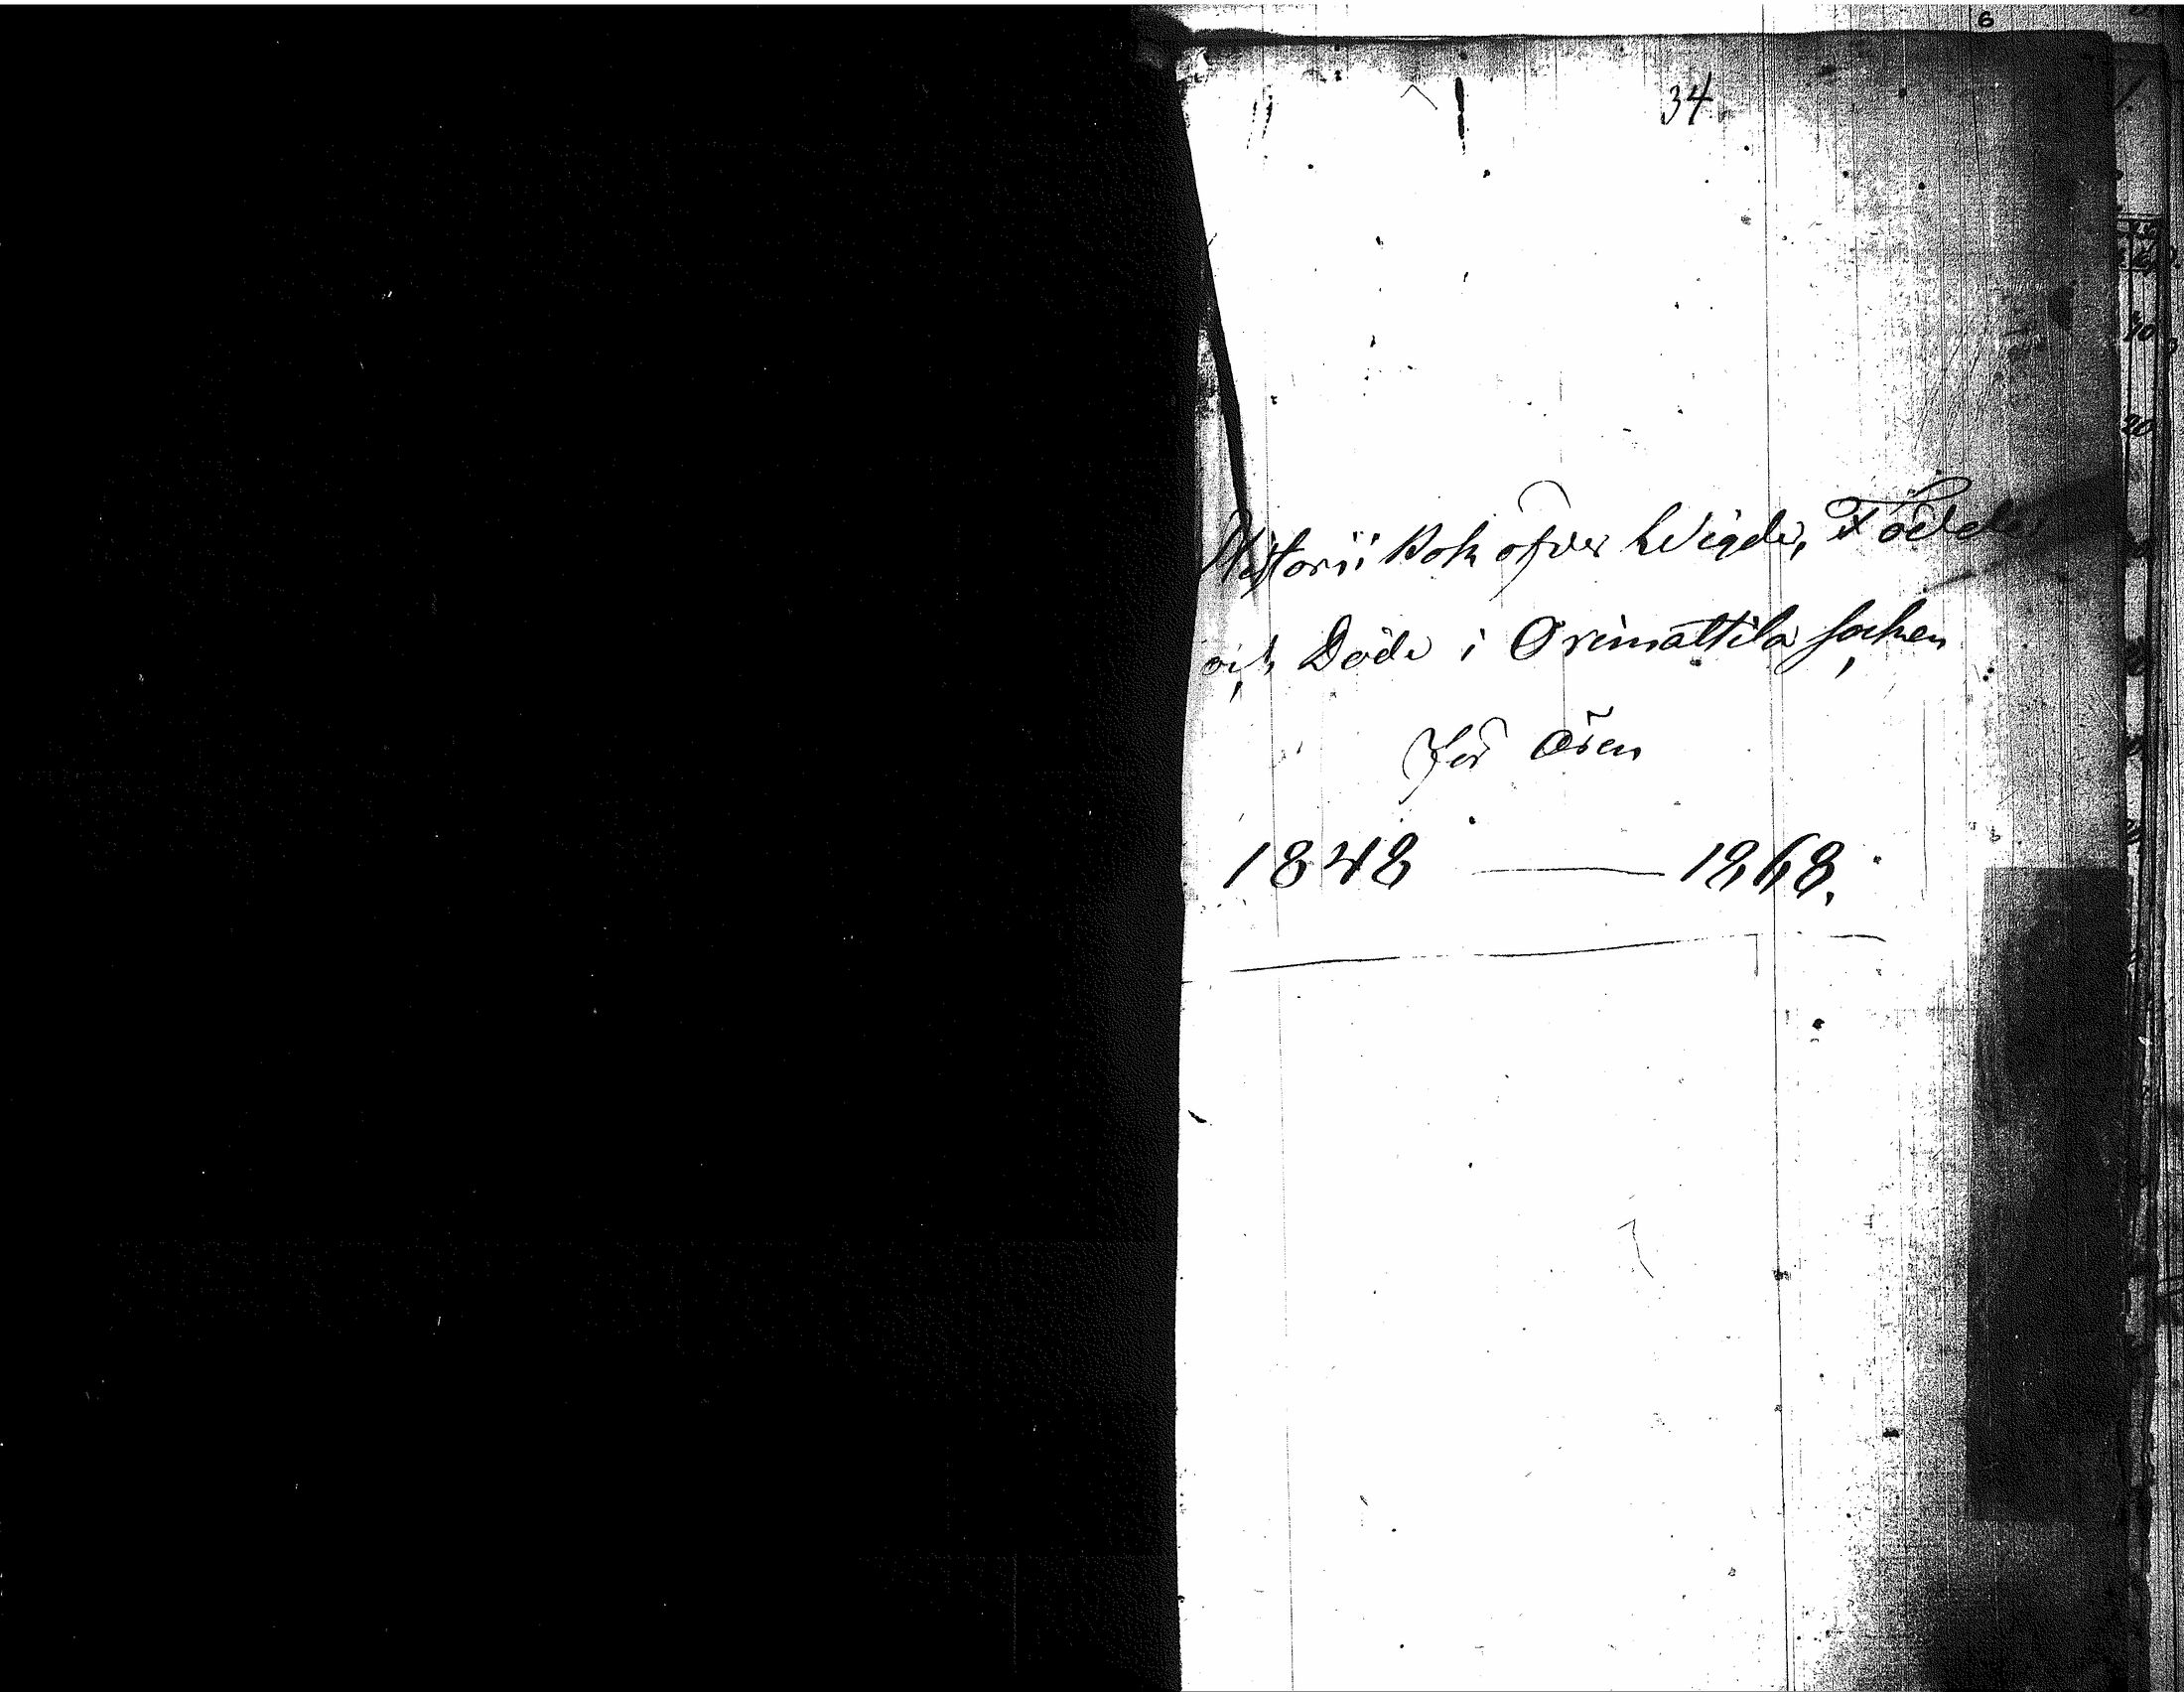 34
Historii Bok öfver Wigde, Födde
och Döde i Orimattila socken
för åren
1848 — 1868.